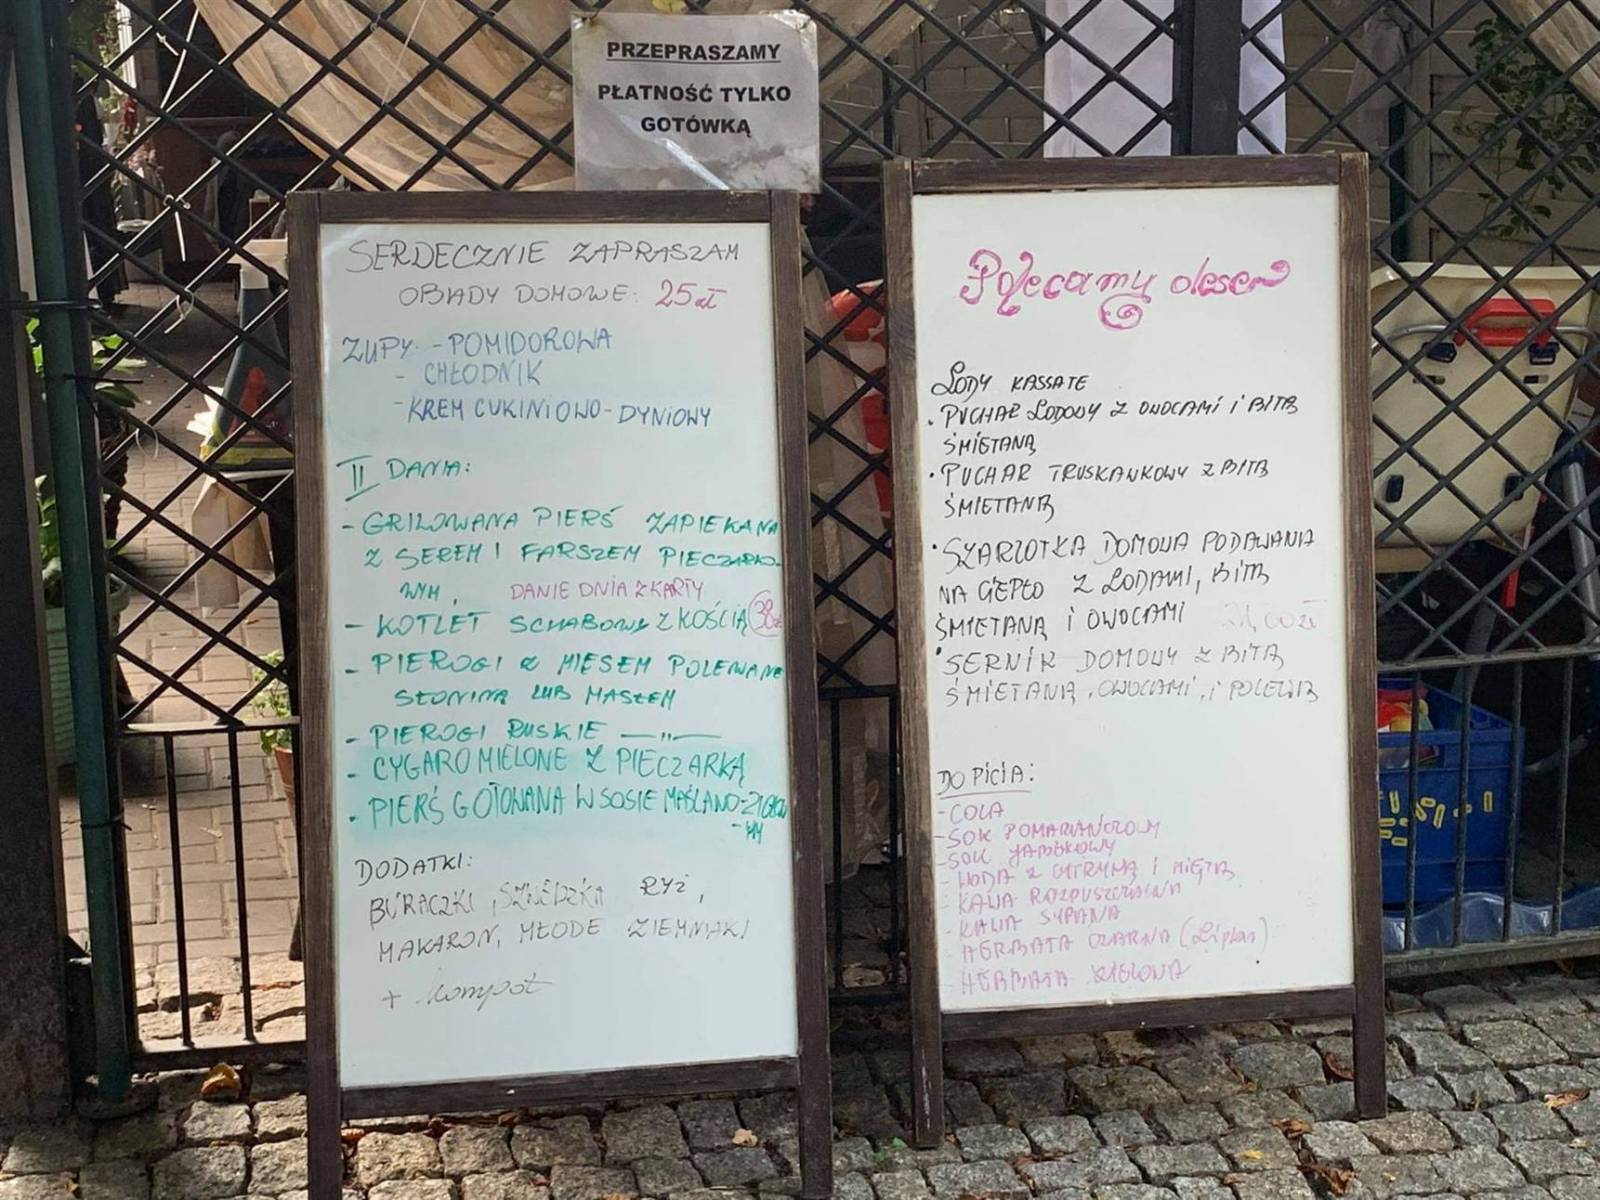 PRZEPRASZAMY
PŁATNOŚĆ TYLKO
GOTÓWKĄ
SERDECZNIE ZAPRASZAM
OBIADY DOMOWE: 25 zł
ZUPY: - POMIDOROWA
- CHŁODNIK
- KREM CUKINIOWO-DYNIOWY
II DANIA:
- GRILOWANA PIERŚ ZAPIEKANA
Z SEREM I FARSZEM PIECZARKO-
WYM, DANIE DNIA Z KARTY
- KOTLET SCHABOWY Z KOŚCIĄ 38zł
- PIEROGI Z MIĘSEM POLEWANE
SŁONINĄ LUB MASŁEM
- PIEROGI RUSKIE —"—
- CYGARO MIELONE Z PIECZARKĄ
- PIERŚ GOTOWANA W SOSIE MAŚLANO-ZIOŁO
-WYM
DODATKI:
BURACZKI, SZWEDZKA RYŻ,
MAKARON, MŁODE ZIEMNIAKI
+ kompot
Polecamy deser
LODY KASSATE
• PUCHAR LODOWY Z OWOCAMI I BITĄ
ŚMIETANĄ
• PUCHAR TRUSKAWKOWY Z BITĄ
ŚMIETANĄ
• SZARLOTKA DOMOWA PODAWANA
NA CIEPŁO Z LODAMI, BITĄ
ŚMIETANĄ I OWOCAMI
• SERNIK DOMOWY Z BITĄ
ŚMIETANĄ, OWOCAMI, I POLEWĄ
DO PICIA:
- COLA
- SOK POMARAŃCZOWY
- SOK JABŁKOWY
- WODA Z CYTRYNĄ I MIĘTĄ
- KAWA ROZPUSZCZALNA
- KAWA SYPANA
- HERBATA CZARNA (Lipton)
- HERBATA ZIELONA